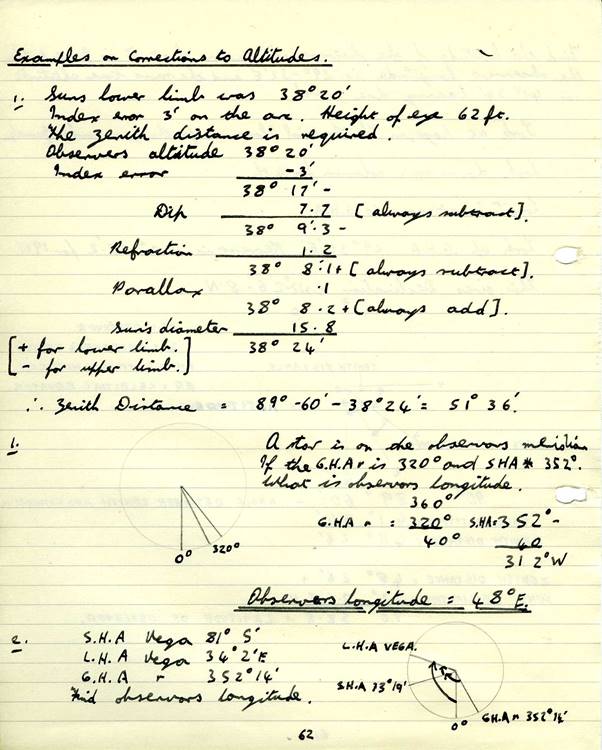 Examples on Corrections to Altitudes.
1. Suns lower limb was 38° 20'
Index error 3' on the arc. Height of eye 62 ft.
The zenith distance is required.
Observers altitude 38° 20'
Index error -3'
38° 17' -
Dip 7.7 [always subtract].
38° 9.3 -
Refraction 1.2
38° 8.1+ [always subtract].
Parallax .1
38° 8.2+ [always add].
Sun's diameter 15.8
[+ for lower limb.] 38° 24'
[- for upper limb.]
∴ Zenith Distance = 89° -60' - 38° 24' = 51° 36'.
1. A star is on the observers meridian
If the G.H.A ♈ is 320° and SHA * 352°.
What is observers longitude.
360°
G.H.A ♈ = 320° S.HA= 352° -
40° 40
312° W
0° 320°
Observers longitude = 48° E.
2. S.H.A Vega 81° 5'
L.H.A Vega 34° 2' E
G.H.A ♈ 352° 14'
Find observers longitude.
L.H.A VEGA.
S.H.A 73° 19'
0° GHA ♈ 352° 14'
62